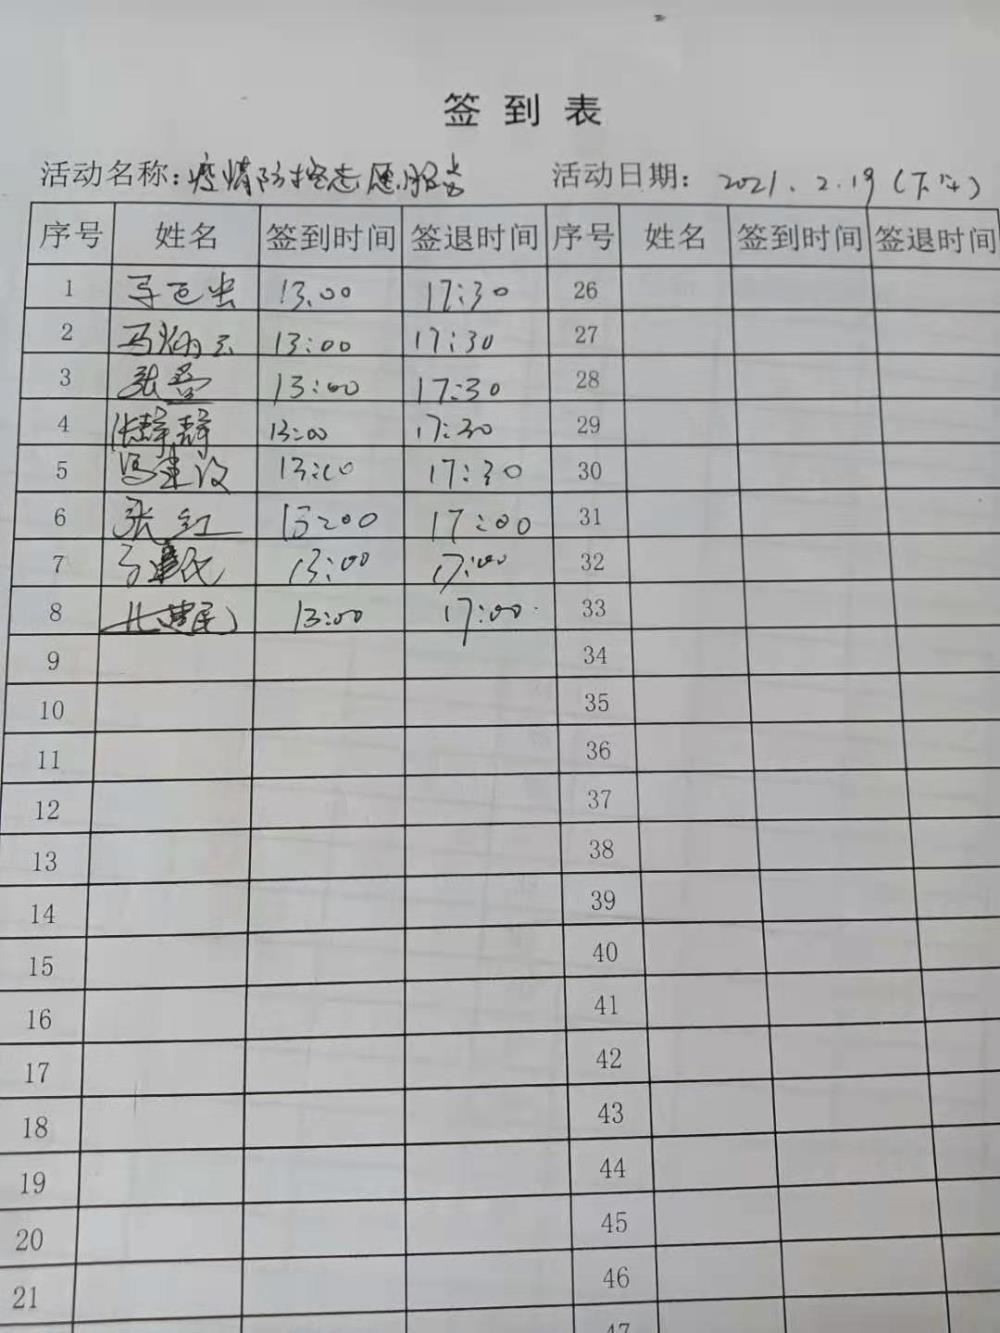 签到表
活动名称:疫情防控志愿服务 活动日期: 2021.2.19(下午)
序号 姓名 签到时间 签退时间 序号 姓名 签到时间 签退时间
1 13:00 17:30 26
2 马炳云 13:00 17:30 27
3 张 13:00 17:30 28
4 张静静 13:00 17:30 29
5 冯建设 13:00 17:30 30
6 张红 13:00 17:00 31
7 13:00 17:00 32
8 13:00 17:00 33
9 34
10 35
11 36
12 37
13 38
14 39
15 40
16 41
17 42
18 43
19 44
20 45
21 46
47